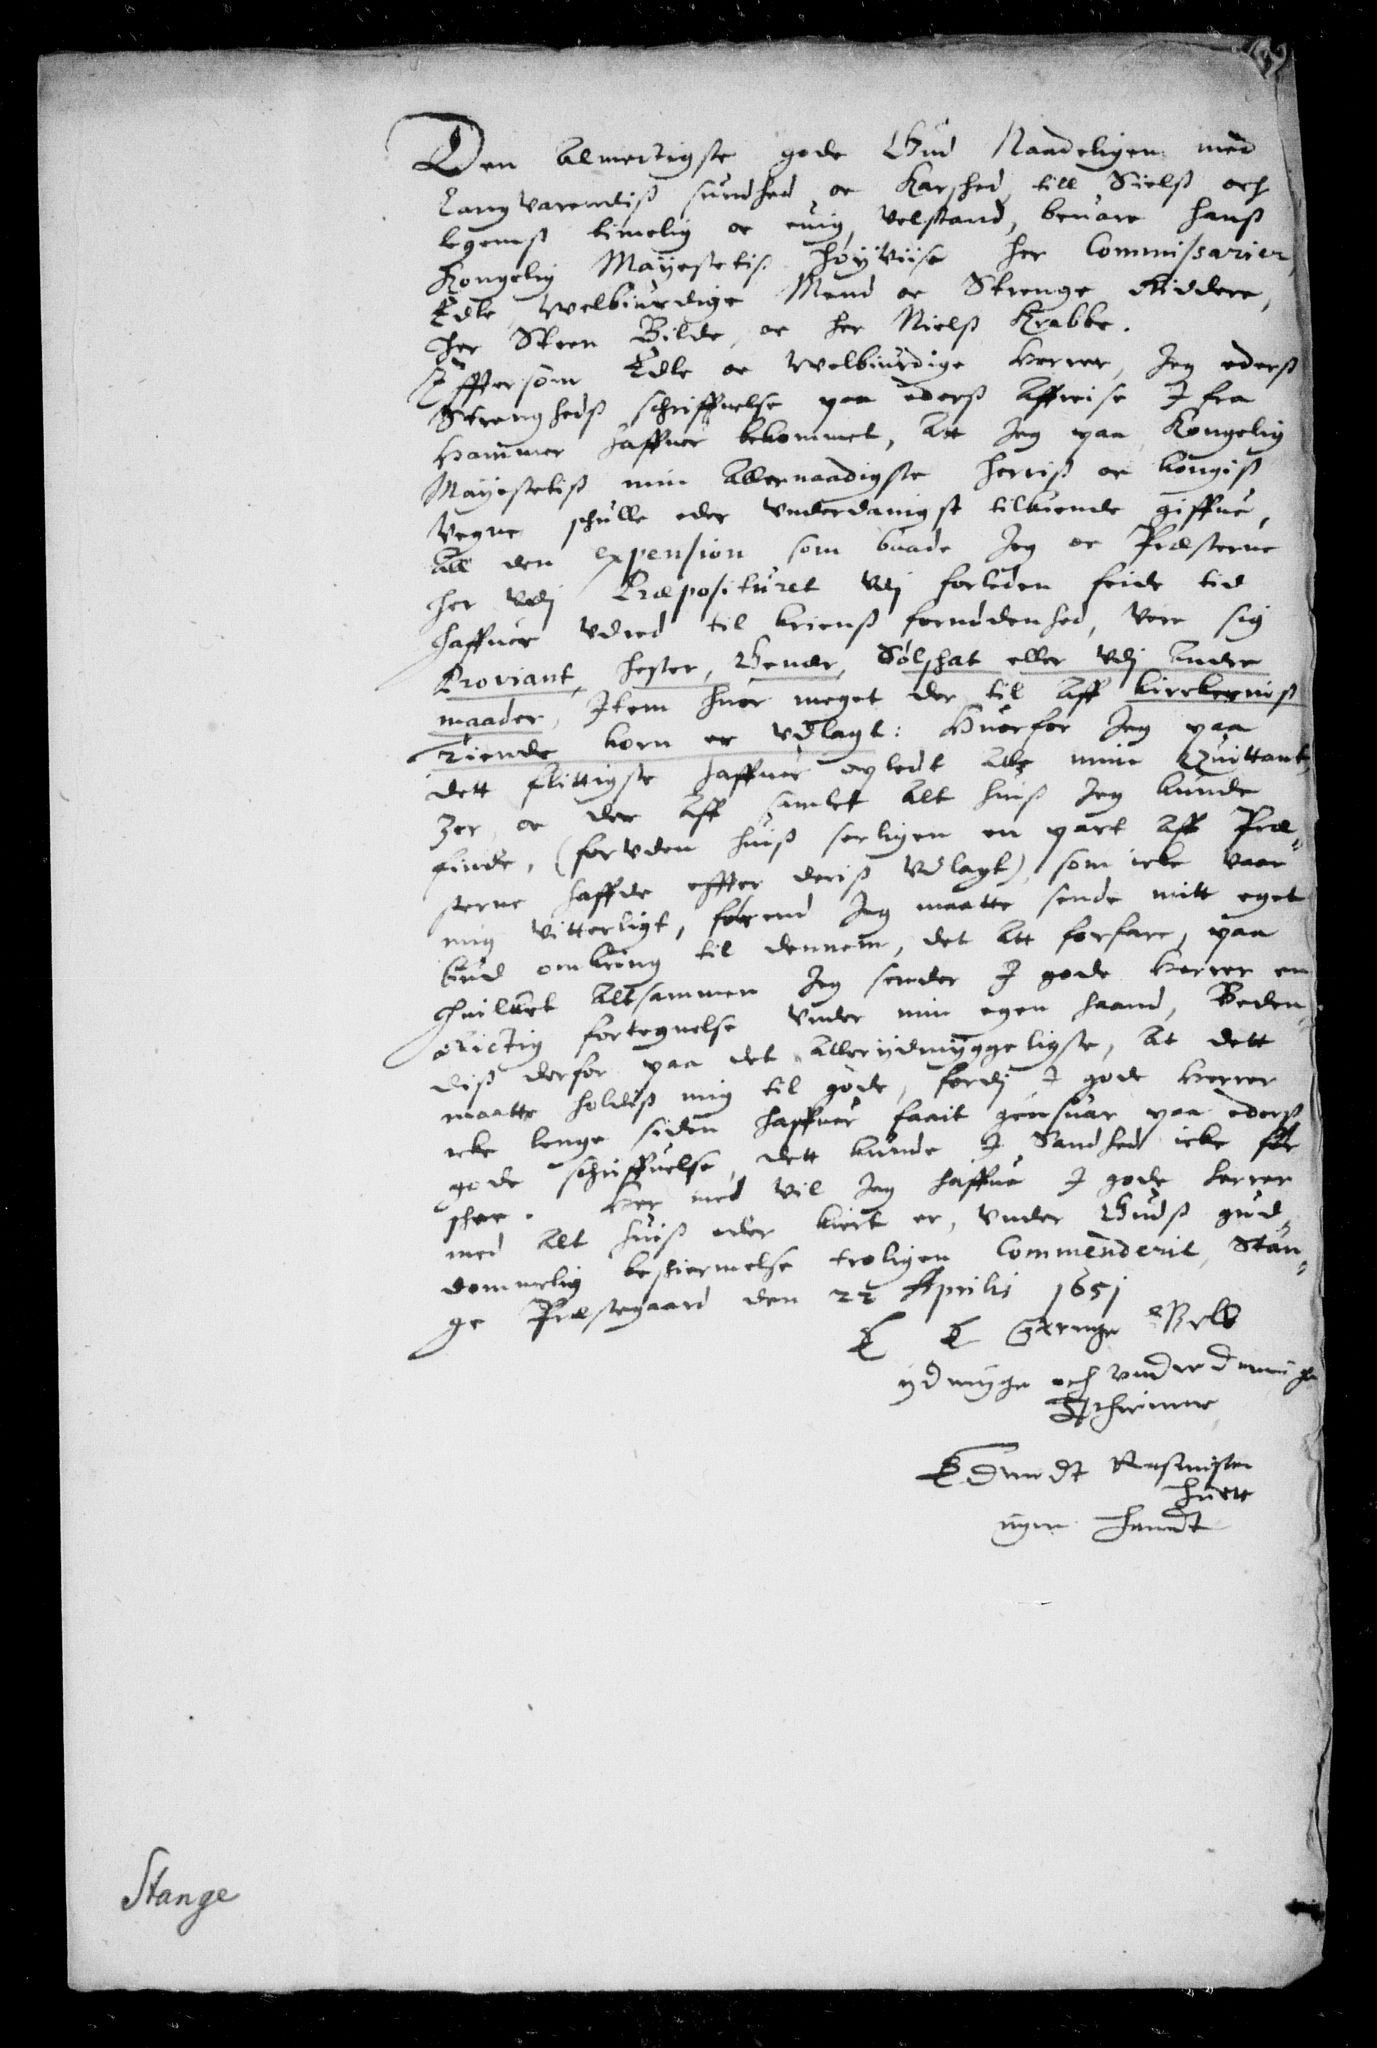 Den Almectigste gode Gud Naadeligen med
Langvarendiß sundhed oc Karshed, till Sielß och
legemß timelig oc euig, velstand, beuare hanß
Kongelig Mayestetiß høyviise her Commissarier,
Edle Welbiurdige Mend oc Strenge Riddere,
Her Steen Bilde, oc her Nielß Krabbe.
Effttersom Edle oc Welbiurdige Herrer, Jeg eders
Strengheds schriffuelse paa eders Affreise I fra
Hammer haffuer bekommet, Att Jeg paa Kongelig
Mayestetiß min Allernaadigste herriß oc kongiß
Vegne schulle eder Vnderdanigst tilkiende giffue,
All den expension som baade Jeg oc Præsterne
her Vdj Præposituret Vdj forleden feide tid
haffuer Vdred til krienß fornødenhed, Vere sig
Proviant, hester, Geuær, Sølschat eller Vdj Andre
maader, Item huor meget der til Aff kirckerniß
Tiende korn er Vdlagt: Huorfor Jeg paa
dett flittigste haffuer opledt Alle mine Quittant,
zer, oc der Aff samlet Alt huiß Jeg kunde
finde, (forvden huiß serligen en part Aff Præ,,
sterne haffde effter deriß Vdlagt) som icke vaar
mig Vitterligt, førend Jeg maatte sende mitt eget
Bud omkring til dennem, det Att forfare, paa
huilket Altsammen Jeg sender I gode Herrer en
Rictig fortegnelse Vnder min egen haand, Beden,
diß derfor paa det Allerydmyggeligste, At dett
maatte holdiß mig til gode, fordj I gode Herrer
icke lenge siden haffuer faait gensuar paa eders
gode schriffuelse, dett kunde I Sandhed icke før
schee. Her med Vil Jeg haffue I gode herrer
med Alt huiß eder kiert er, Vnder Gudß gud,,
dommelig beschiermelse troligen Commenderit, Stan,,
ge Præstegaard den 22 Aprilis 1651
E E Strenge Velb
ydmyge och vnderdanige
Thienere
Rasmusen
egen handt
Stange